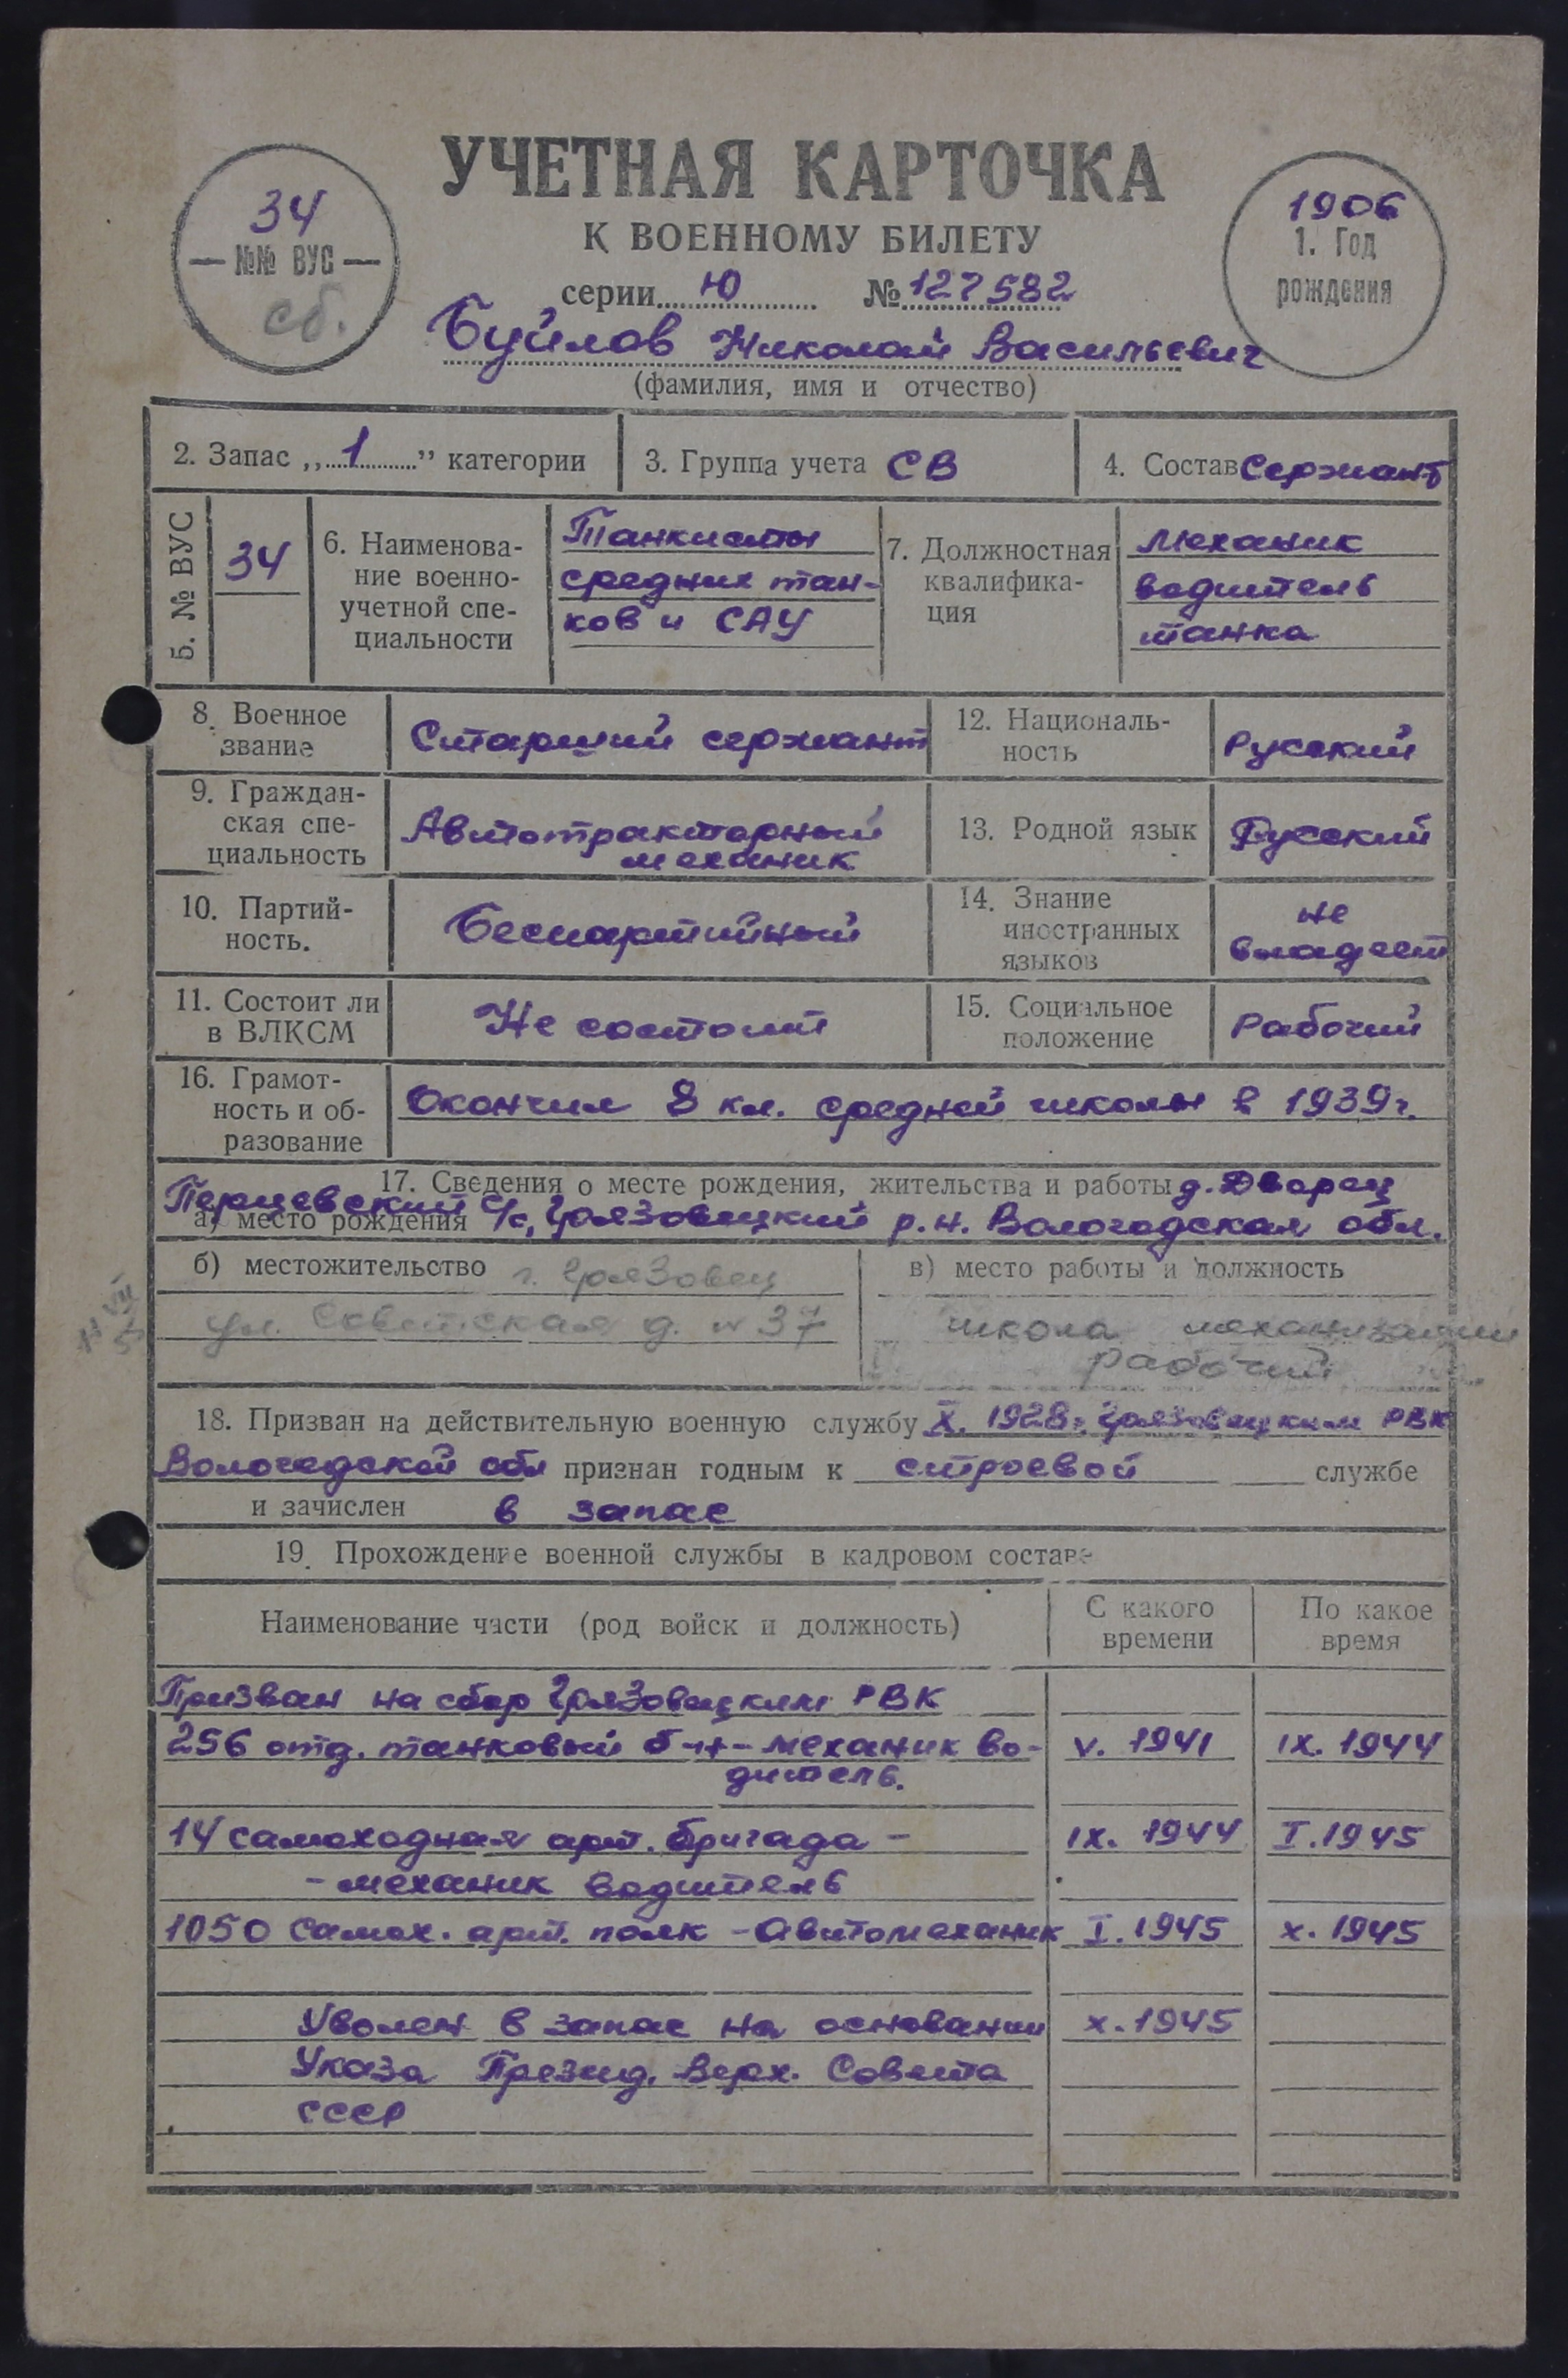 УЧЕТНАЯ КАРТОЧКА
К ВОЕННОМУ БИЛЕТУ
серии Ю № 127582
34
№№ ВУС
сб.
1906
1. Год
рождения
Буйлов Николай Васильевич
(фамилия, имя и отчество)
2. Запас „1” категории
3. Группа учета СВ
4. Состав Сержант
5. № ВУС
34
6. Наименова-
ние военно-
учетной спе-
циальности
Танкисты
средних тан-
ков и САУ
7. Должностная
квалифика-
ция
Механик
водитель
танка
8. Военное
звание
Старший сержант
12. Националь-
ность
Русский
9. Граждан-
ская спе-
циальность
Автотракторный
механик
13. Родной язык
Русский
10. Партий-
ность.
Беспартийный
14. Знание
иностранных
языков
не
владеет
11. Состоит ли
в ВЛКСМ
Не состоит
15. Социальное
положение
Рабочий
16. Грамот-
ность и об-
разование
Окончил 8 кл. средней школы в 1939г.
17. Сведения о месте рождения, жительства и работы д. Дворец
а) место рождения Перцевский с/с, Грязовецкий р.н. Вологодская обл.
б) местожительство г. Грязовец
ул. Советская д. № 37
в) место работы и должность
школа механизации
рабочий
18. Призван на действительную военную службу X. 1928г. Грязовецким РВК
Вологодской обл признан годным к строевой службе
и зачислен в запас
19. Прохождение военной службы в кадровом составе
Наименование части (род войск и должность)
С какого
времени
По какое
время
Призван на сбор Грязовецким РВК
256 отд. танковый б-н - механик во- V. 1941 IX. 1944
дитель.
14 самоходная арт. бригада - IX. 1944 I. 1945
- механик водитель
1050 Самох. арт. полк - Автомеханик I. 1945 X. 1945
Уволен в запас на основании X. 1945
Указа Презид. Верх. Совета
СССР